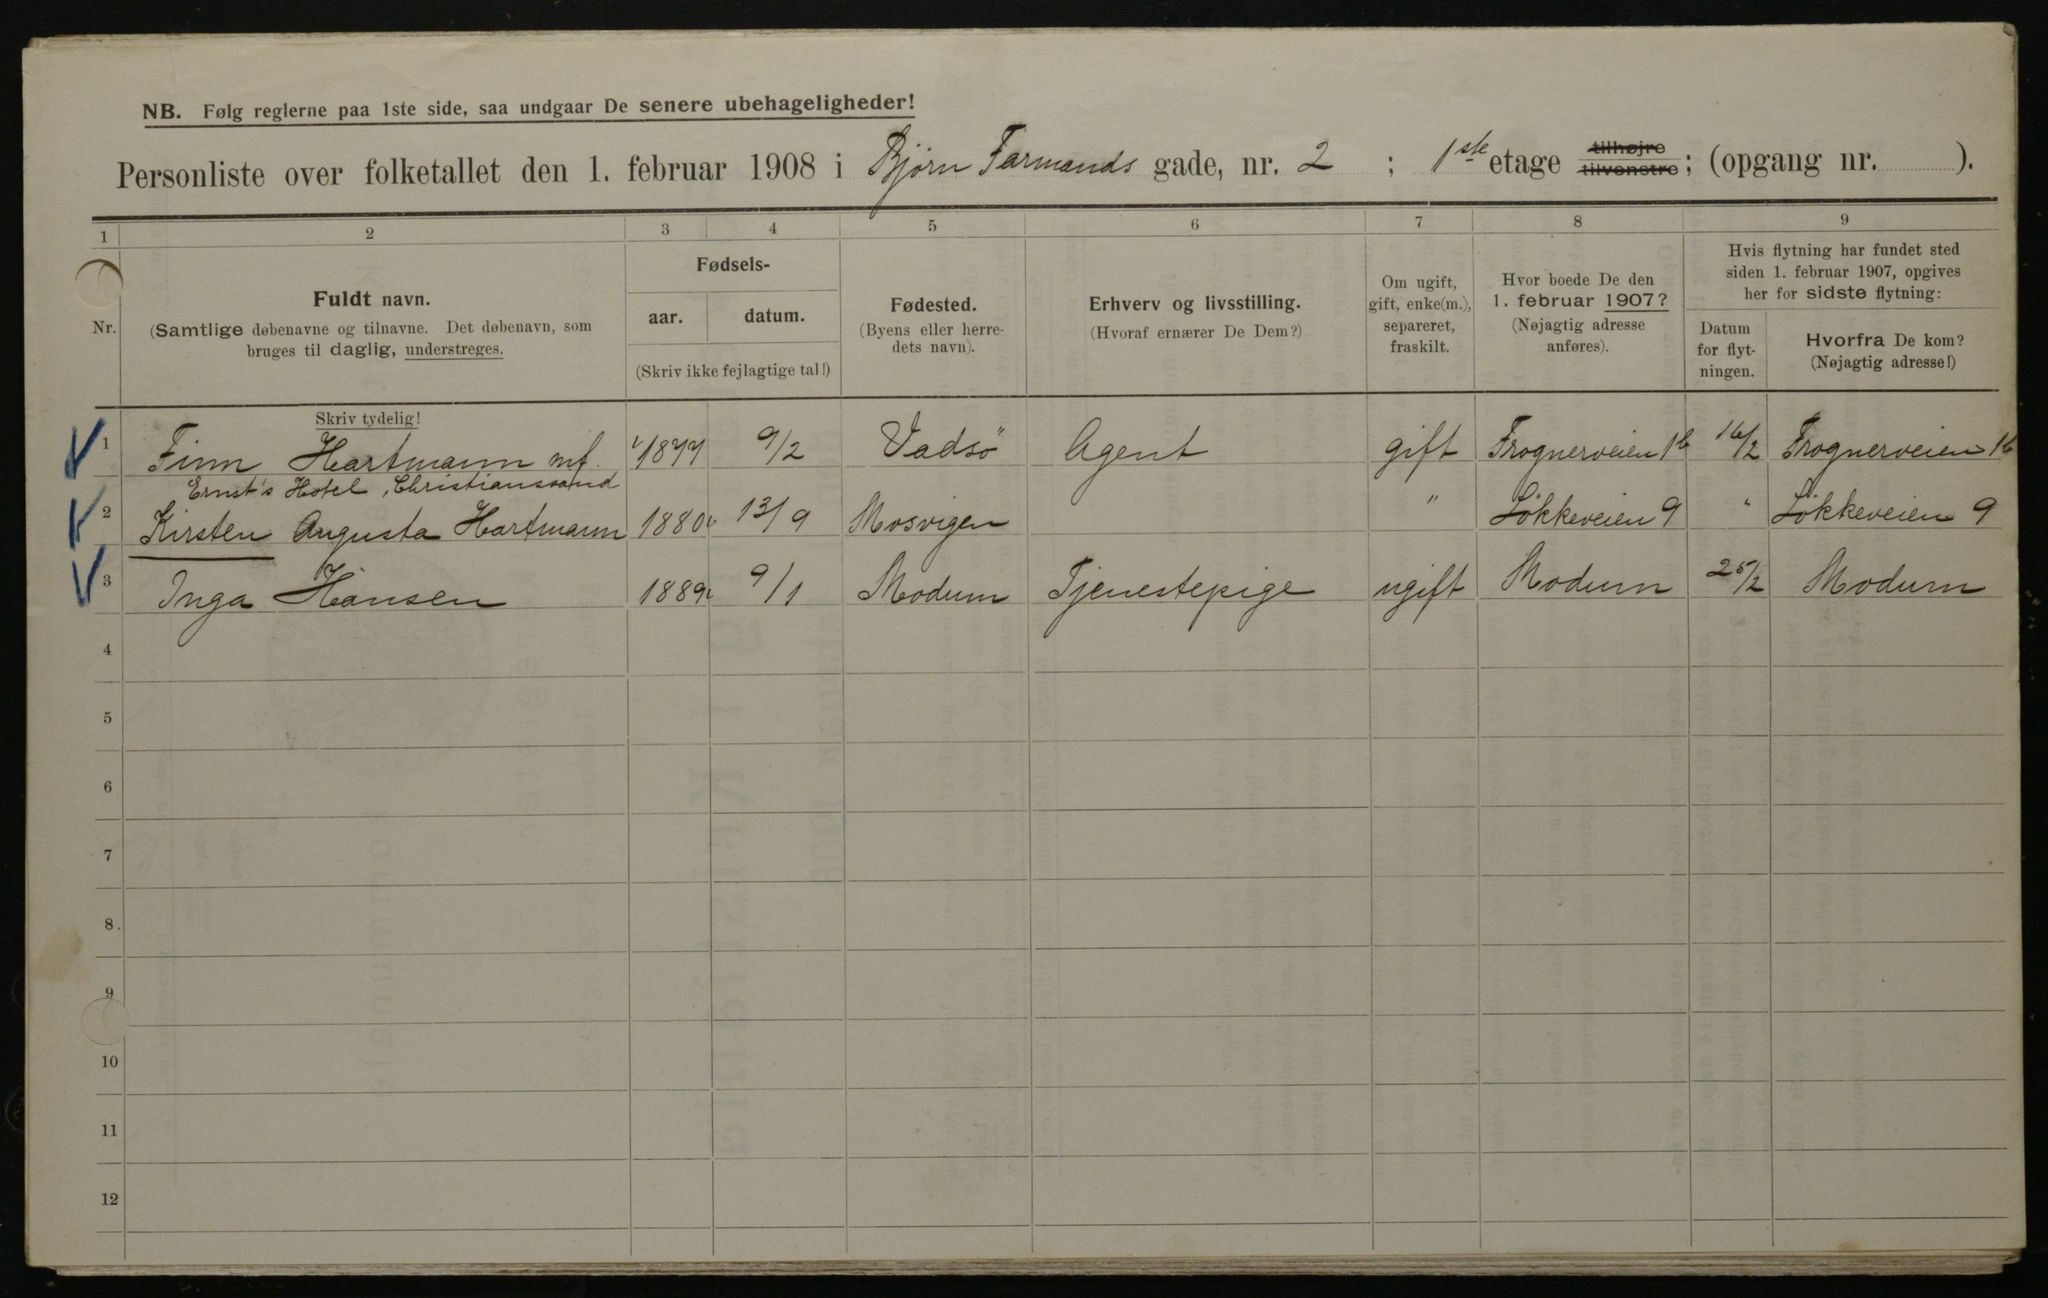 NB. Følg reglerne paa 1ste side, saa undgaar De senere ubehageligheder!
Personliste over folketallet den 1. februar 1908 i Bjørn Farmands gade, nr. 2 ; 1ste etage tilhøjre tilvenstre; (opgang nr. ).
1 2 3 4 5 6 7 8 9
Nr.
Fuldt navn.
(Samtlige døbenavne og tilnavne. Det døbenavn, som
bruges til daglig, understreges.
Skriv tydelig!
Fødsels-
aar. datum.
(Skriv ikke fejlagtige tal!)
Fødested.
(Byens eller herre-
dets navn).
Erhverv og livsstilling.
(Hvoraf ernærer De Dem?)
Om ugift,
gift, enke(m.),
separeret,
fraskilt.
Hvor boede De den
1. februar 1907?
(Nøjagtig adresse
anføres).
Hvis flytning har fundet sted
siden 1. februar 1907, opgives
her for sidste flytning:
Datum
for flyt-
ningen.
Hvorfra De kom?
(Nøjagtig adresse!)
1 Finn Hartmann mf. 1877 9/2 Vadsö Agent gift Frognerveien 1b 16/2 Frognerveien 1b
Ernst's Hotel, Christianssand
2 Kirsten Augusta Hartmann 1880 13/9 Mosvigen " Lökkeveien 9 " Lökkeveien 9
3 Inga Hansen 1889 9/1 Modum Tjenestepige ugift Modum 25/2 Modum
4
5
6
7
8
9
10
11
12